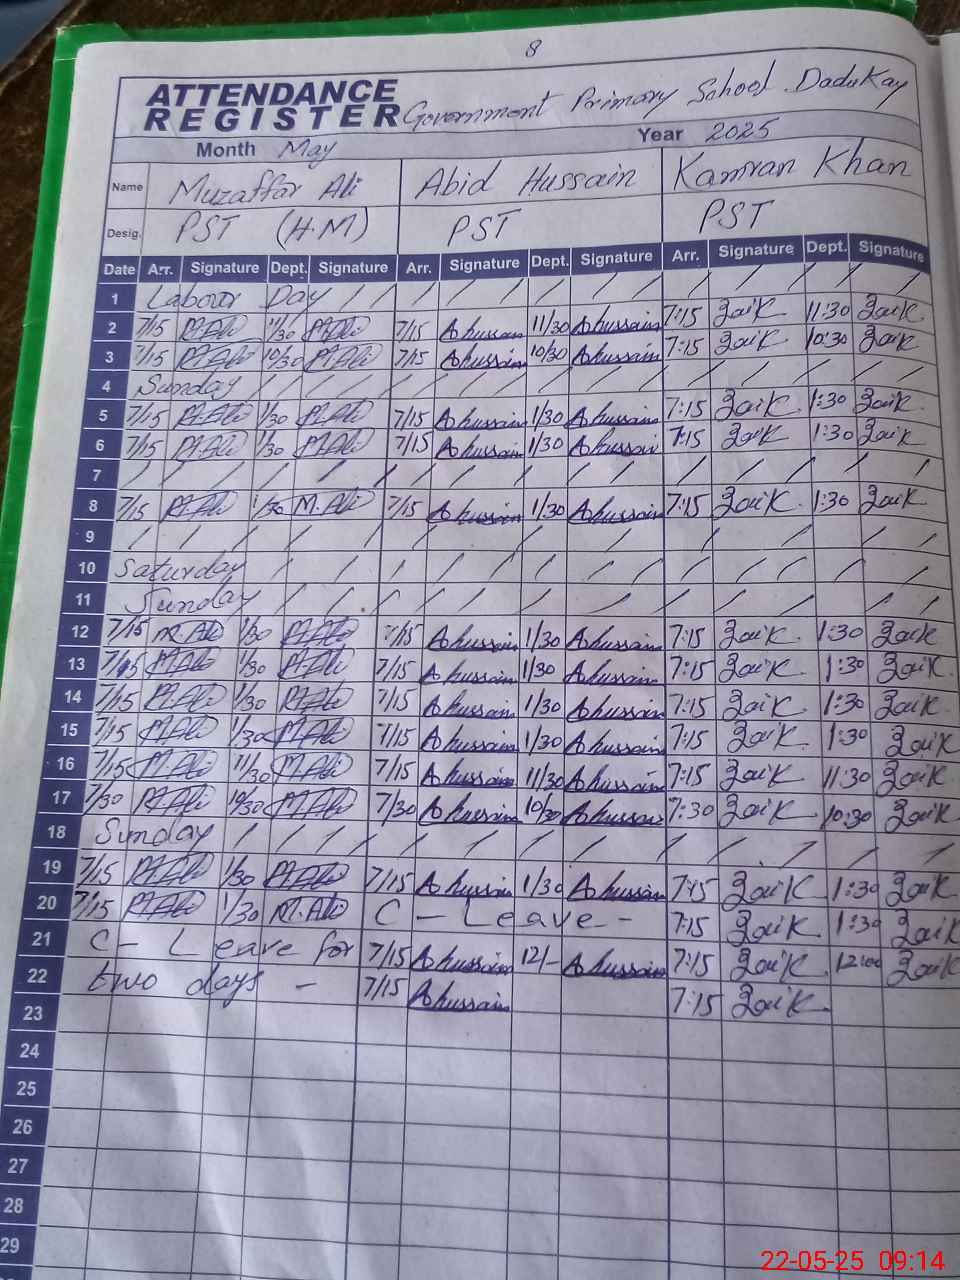 8
ATTENDANCE
REGISTER Government Primary School Dadukay
Month May Year 2025
Name Muzaffar Ali Abid Hussain Kamran Khan
Desig. PST (H.M) PST PST
Date Arr. Signature Dept. Signature Arr. Signature Dept. Signature Arr. Signature Dept. Signature
1 Labour Day / / / / / / / / / /
2 7/15 M.Ali 11/30 M.Ali 7/15 Ahussain 11/30 Ahussain 7:15 ZaiK 11:30 ZaiK
3 7/15 M.Ali 10/30 M.Ali 7/15 Ahussain 10/30 Ahussain 7:15 ZaiK 10:30 ZaiK
4 Sunday
5 7/15 M.Ali 1/30 M.Ali 7/15 Ahussain 1/30 Ahussain 7:15 ZaiK 1:30 ZaiK
6 7/15 M.Ali 1/30 M.Ali 7/15 Ahussain 1/30 Ahussain 7:15 ZaiK 1:30 ZaiK
7
8 7/15 M.Ali 1/30 M.Ali 7/15 Ahussain 1/30 Ahussain 7:15 ZaiK 1:30 ZaiK
9
10 Saturday
11 Sunday
12 7/15 M.Ali 1/30 M.Ali 7/15 Ahussain 1/30 Ahussain 7:15 ZaiK 1:30 ZaiK
13 7/15 M.Ali 1/30 M.Ali 7/15 Ahussain 1/30 Ahussain 7:15 ZaiK 1:30 ZaiK
14 7/15 M.Ali 1/30 M.Ali 7/15 Ahussain 1/30 Ahussain 7:15 ZaiK 1:30 ZaiK
15 7/15 M.Ali 1/30 M.Ali 7/15 Ahussain 1/30 Ahussain 7:15 ZaiK 1:30 ZaiK
16 7/15 M.Ali 11/30 M.Ali 7/15 Ahussain 11/30 Ahussain 7:15 ZaiK 11:30 ZaiK
17 7/30 M.Ali 10/30 M.Ali 7/30 Ahussain 10/30 Ahussain 7:30 ZaiK 10:30 ZaiK
18 Sunday
19 7/15 M.Ali 1/30 M.Ali 7/15 Ahussain 1/30 Ahussain 7:15 ZaiK 1:30 ZaiK
20 7/15 M.Ali 1/30 M.Ali C - Leave - 7:15 ZaiK 1:30 ZaiK
21 C - Leave for 7/15 Ahussain 12/- Ahussain 7:15 ZaiK 12:00 ZaiK
22 two days - 7/15 Ahussain 7:15 ZaiK
23
24
25
26
27
28
29
22-05-25 09:14